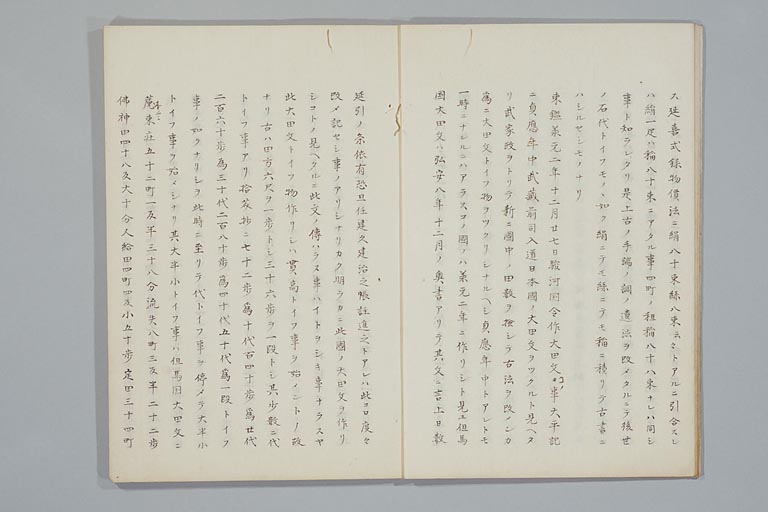 ス延喜式録物價法ニ絹八十束絲八束云々トアルニ引合スレ
ハ絹一疋ハ稲八十束ニアタル事四町ノ租稲八十八束ナレハ同シ
事ト知ラレタリ是上古ノ手端ノ調ノ遺法ヲ改メタルニテ後世
ノ石代トイフモノヽ如ク絹ニテモ絲ニテモ稲ニ積リテ古書ニ
ハシルセシモノナリ
東鑑兼元二年十二月廿七日駿河国令作大田文事大平記
ニ貞應年中武蔵前司入道日本國ノ大田文ヲツクルト見ヘタ
リ武家政ヲトリテ新ニ國中ノ田数ヲ撿シテ古法ヲ改メンカ
為ニ大田文トイフ物ヲツクリシナルヘシ貞應年中トアレトモ
一時ニナレルニハアラスコノ國ノハ兼元二年ニ作リシト見エ但馬
國大田文ハ弘安八年十二月ノ奥書アリテ其文ニ言上日数
延引ノ条依有恐旦任建久建治之帳註進之トアレハ此コロ度々
改メ記セシ事ノアリシナリカク明ラカニ此國ノ大田文ヲ作リ
シコトノ見ヘタルニ此文ノ傳ハラス事ハイトヲシキ事ナラスヤ
此大田文トイフ物作リシハ貫高トイフ事ヲ始メントノ故
ナリ古ハ田方六尺ヲ一歩トシ三十六歩ヲ一段トシ其歩数ニ代
トイフ事アリ拾芥抄ニ七十二歩為十代百四十歩為廿代
二百六十歩為三十代二百八十歩為四十代五十代為一段トイフ
事ノ如クナリシヲ此時ニ至リテ代トイフ事ヲ停メテ大半小
トイフ事ヲ始メシナリ其大半小トイフ事ハ但馬国大田文ニ
菴東莊五十二町一反半三十八分流失八町三反半二十二歩
佛神田四十八反大十分人給田四町四反小五十歩定田三十四町